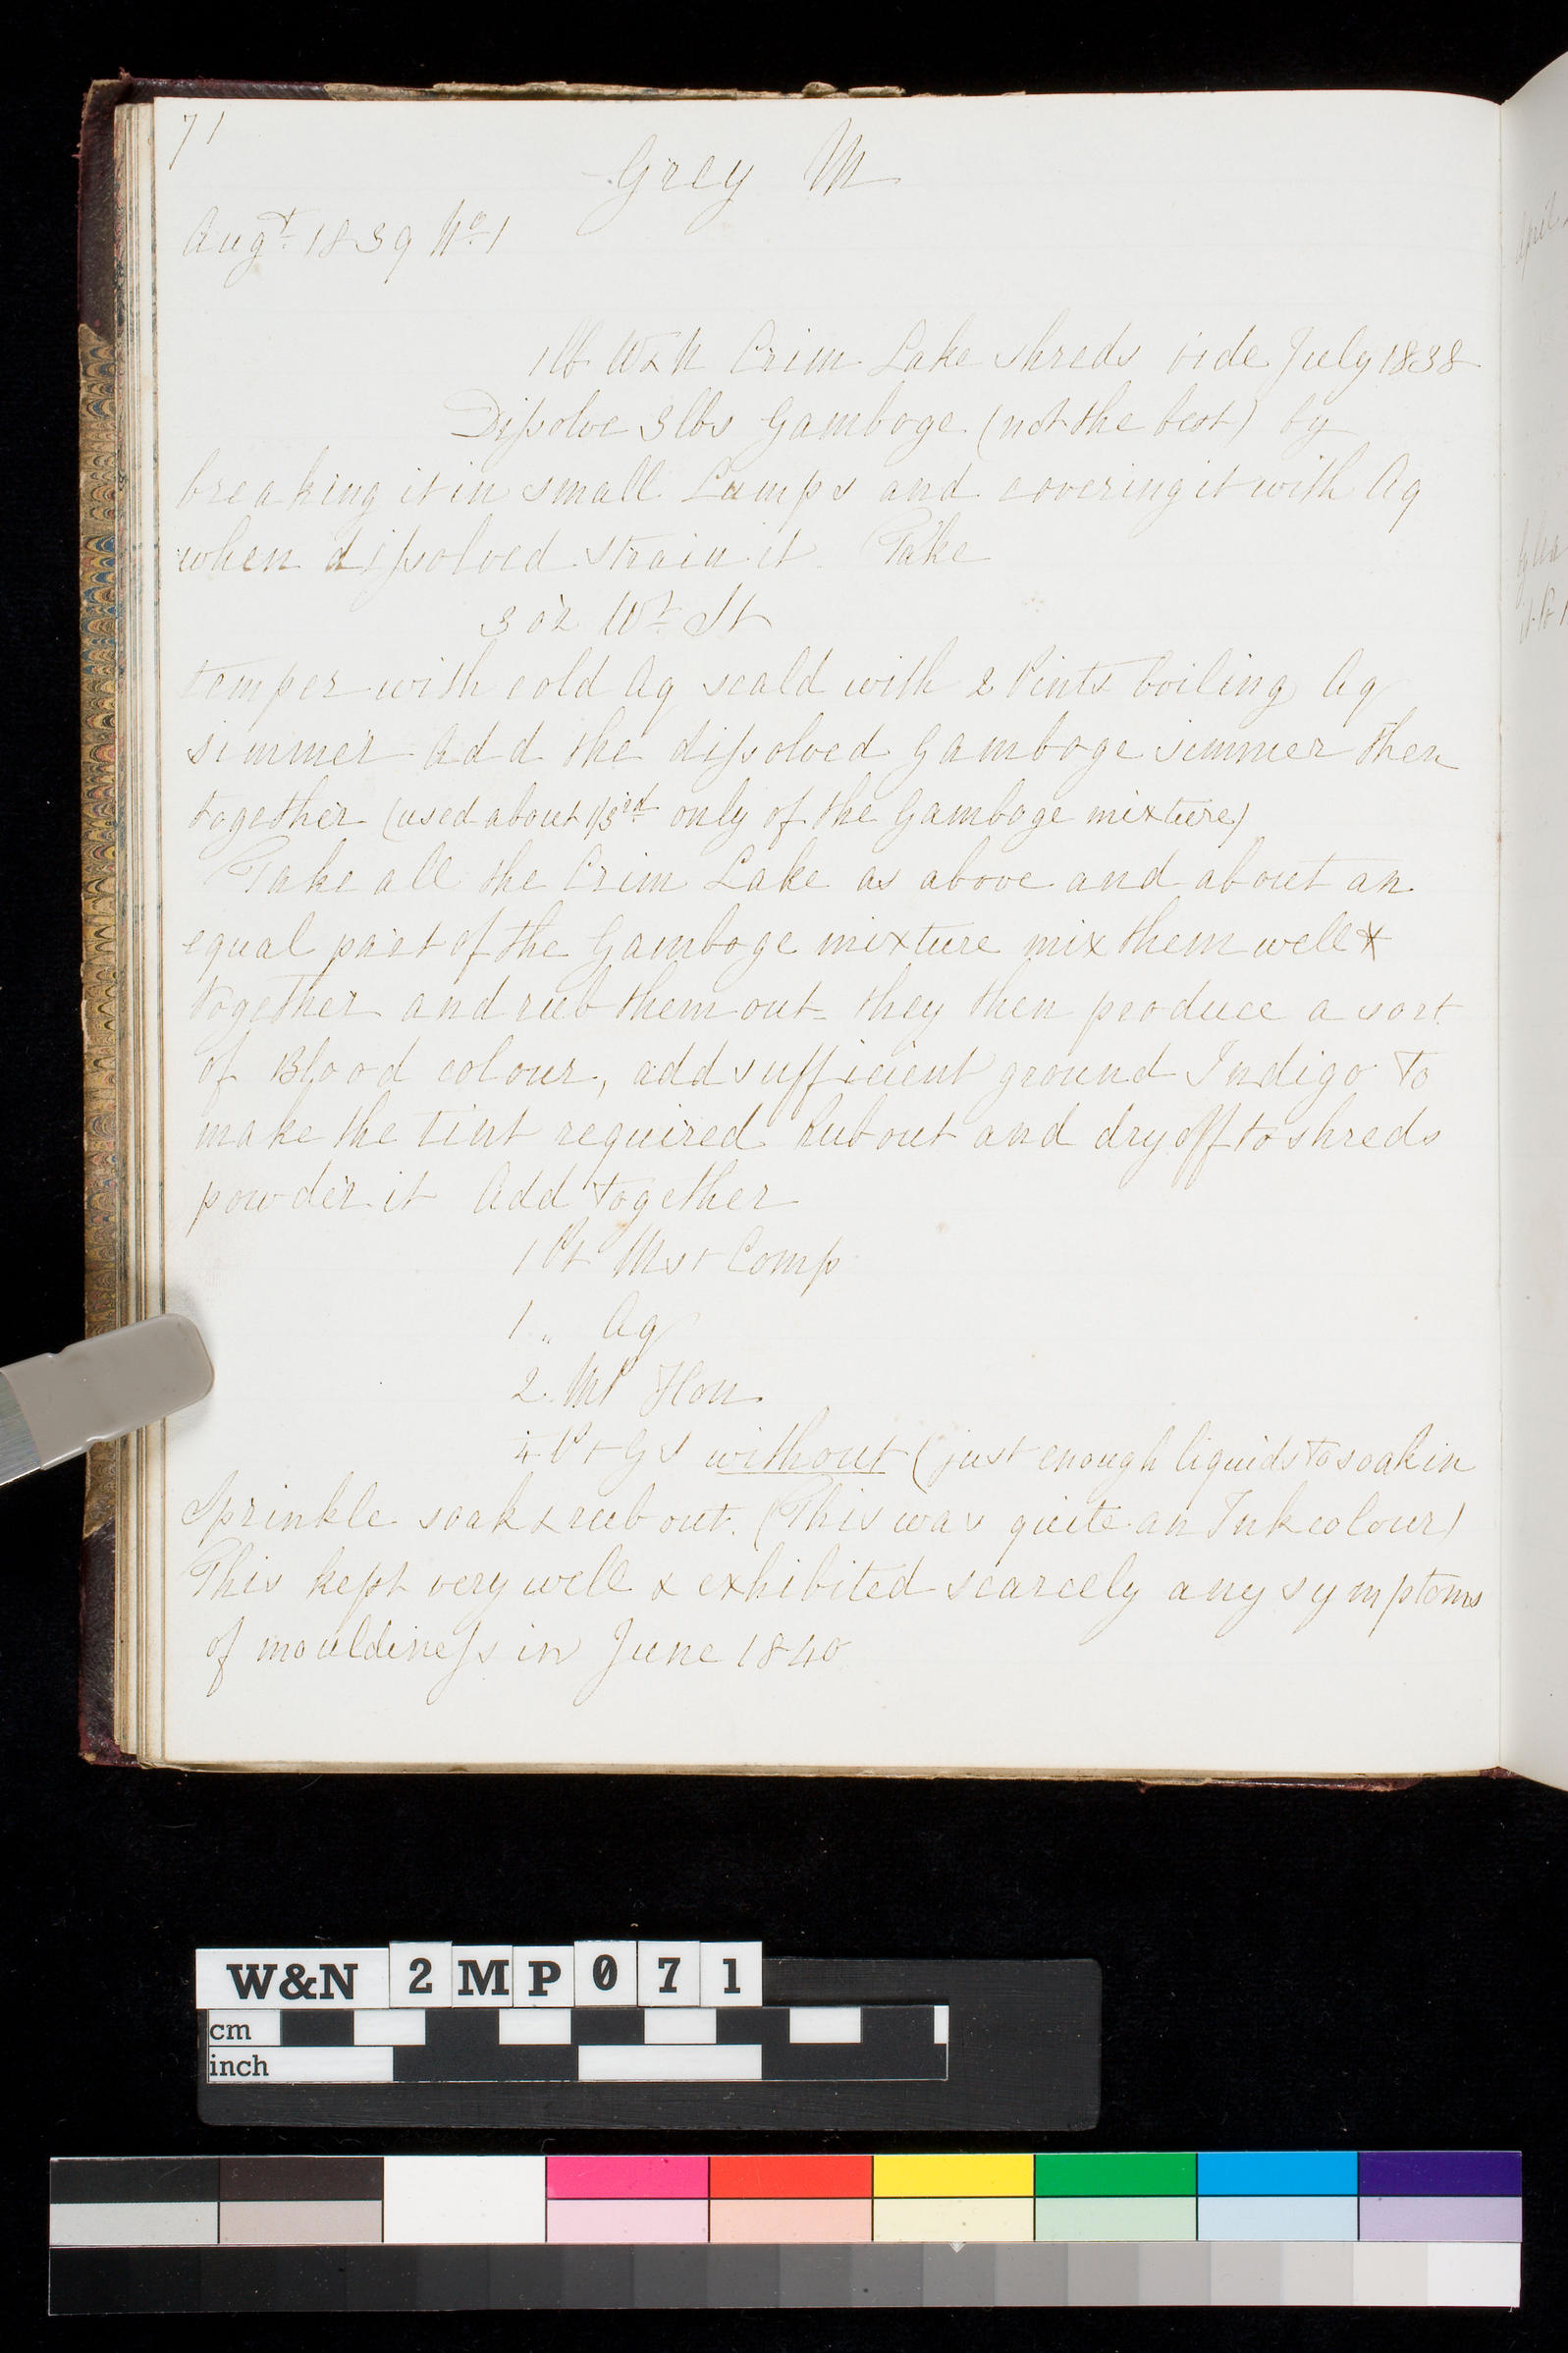 71
Grey M
Augt. 1839 No. 1
1 lb W & N Crim Lake shreds vide July 1838
Dissolve 3 lbs Gamboge (not the best) by
breaking it in small Lumps and covering it with Aq
when dissolved strain it Take
3 oz Wt. St
temper with cold Aq scald with 2 Pints boiling Aq
simmer Add the dissolved Gamboge simmer then
together (used about 1/3rd only of the Gamboge mixture)
Take all the Crim Lake as above and about an
equal part of the Gamboge mixture mix them well
together and rub them out - they then produce a sort
of Blood colour, add sufficient ground Indigo to
make the tint required Rub out and dry off to shreds
powder it Add together
1 Pt Mst Comp
1 " Aq
2 Hon
Pt G S without (just enough liquids to soak in
Sprinkle soak & rub out. (This was quite an Ink colour)
This kept very well & exhibited scarcely any symptoms
of mouldiness in June 1840
April
W&N 2MP071
cm
inch